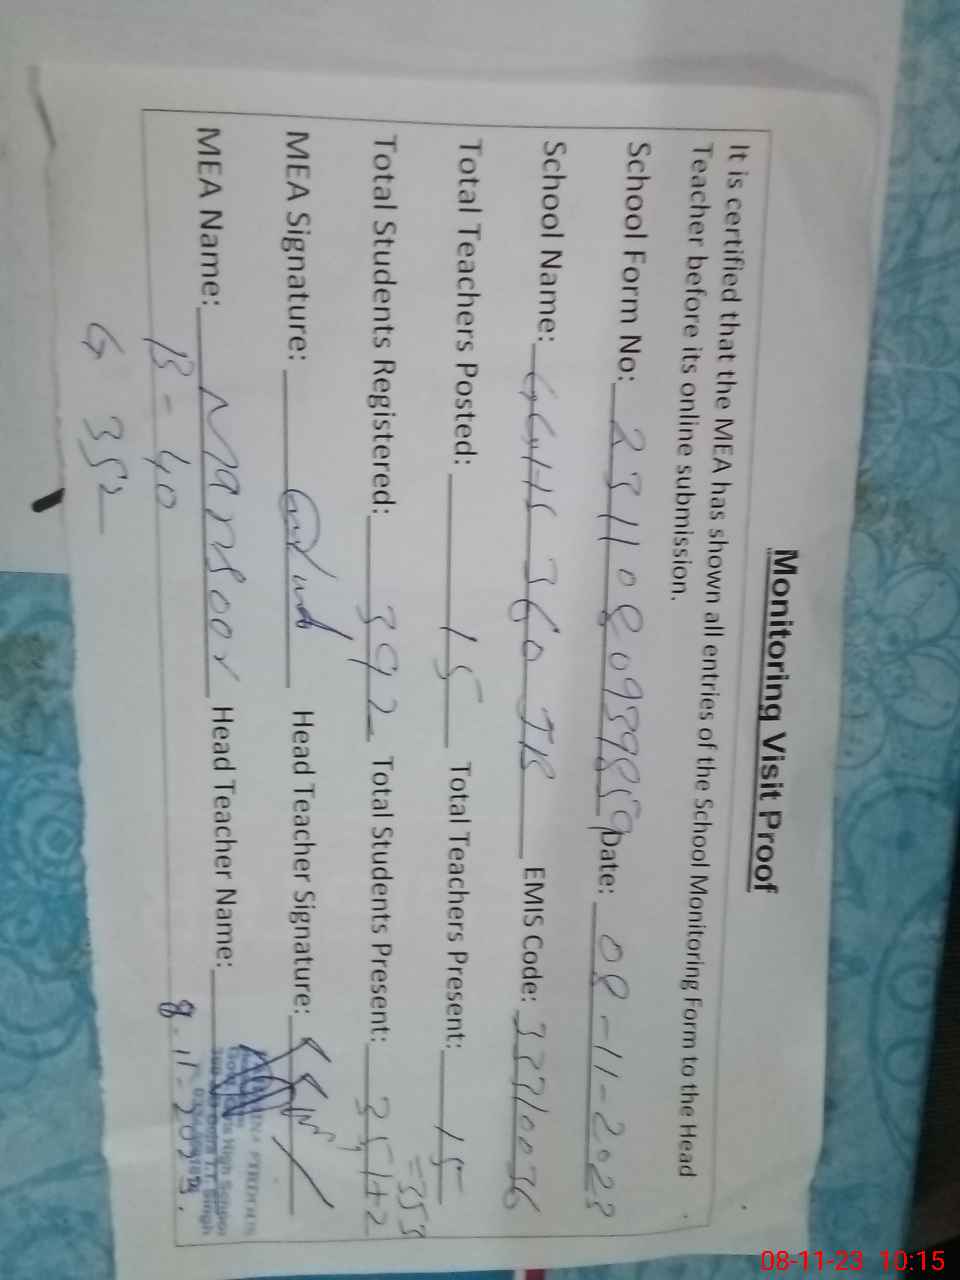 Monitoring Visit Proof
It is certified that the MEA has shown all entries of the School Monitoring Form to the Head
Teacher before its online submission.
School Form No: 2311080939859 Date: 08-11-2023
School Name: GGHS 360 JB EMIS Code: 33710036
Total Teachers Posted: 15 Total Teachers Present: 15
Total Students Registered: 392 Total Students Present: 351+2
=353
MEA Signature: Head Teacher Signature:
MEA Name: Mansoor Head Teacher Name:
High School
T.T. Singh
B - 40
8.11.2023.
G 352
08-11-23 10:15